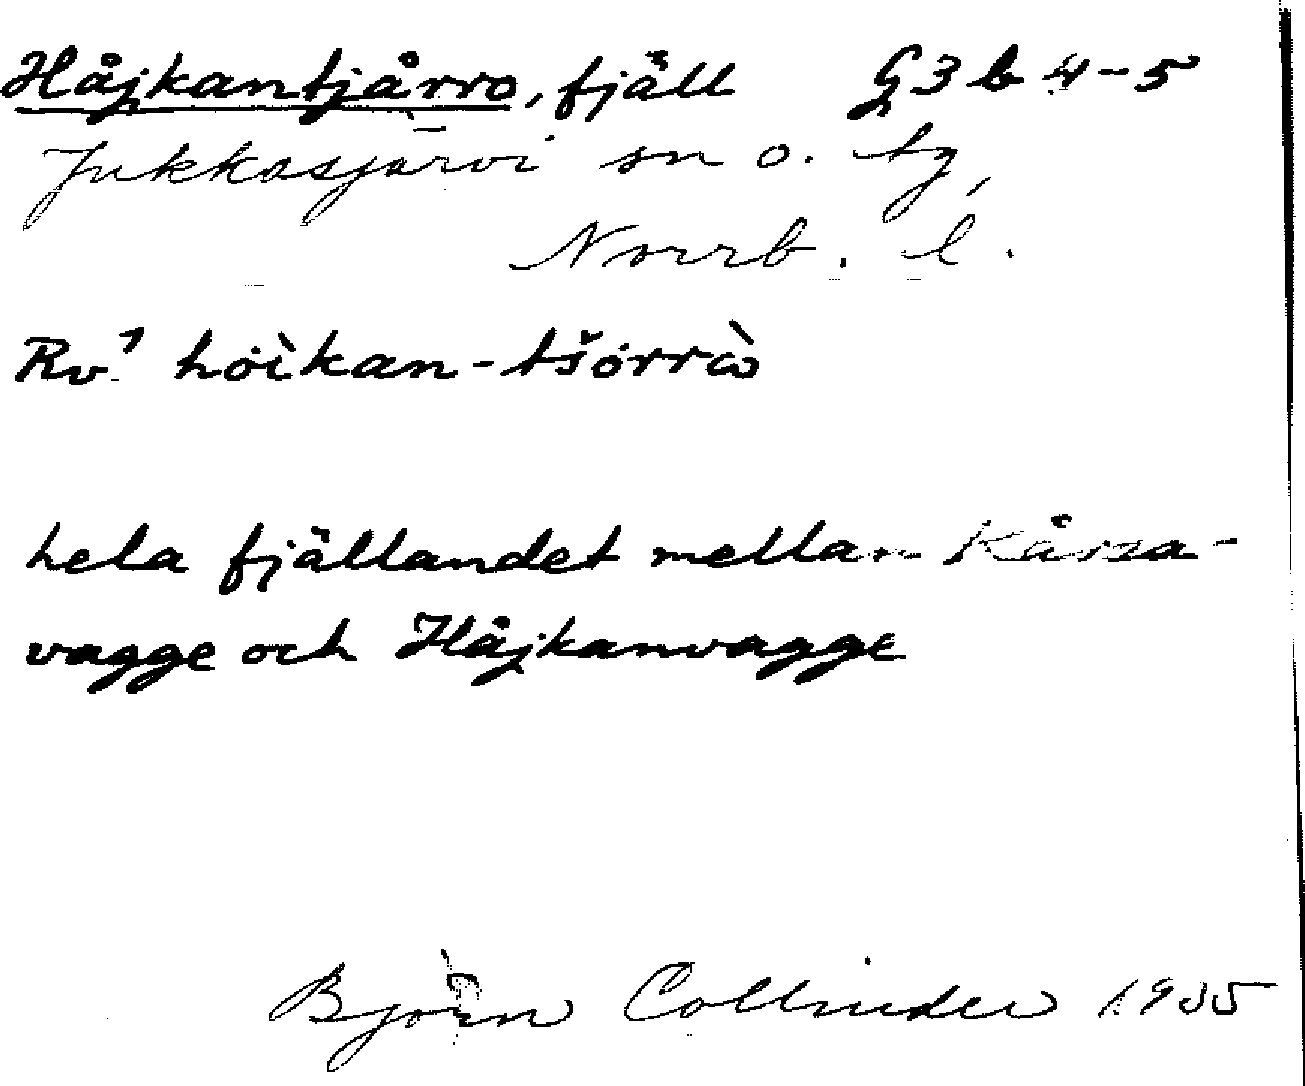 Håjkantjårro, fjäll G3b4-5
Jukkasjärvi sn o. tg,
Norrb. l.
Rv¹ hȯi̇̀kan-tšȯrrὼ
hela fjällandet mellan Kårsa-
vagge och Håjkanvagge
Björn Collinder 1935